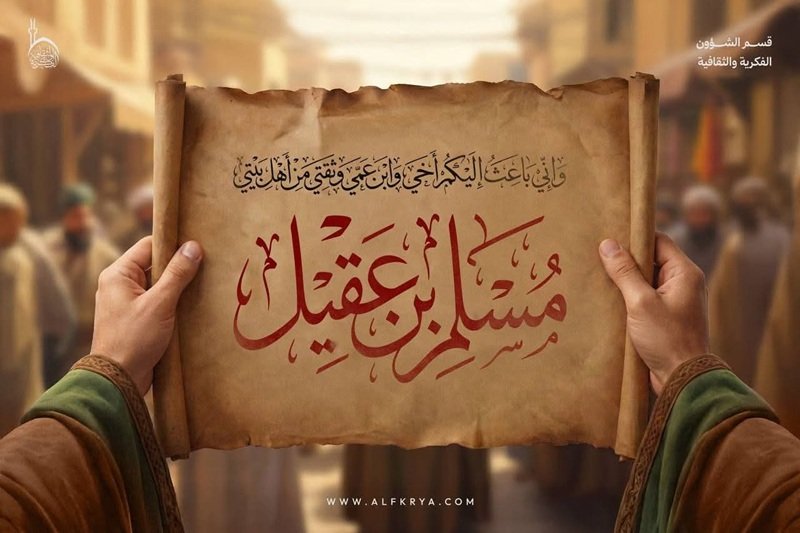 قسم الشؤون
الفكرية والثقافية
وَإِنِّي بَاعِثٌ إِلَيْكُمْ أَخِي وَابْنَ عَمِّي وَثِقَتِي مِنْ أَهْلِ بَيْتِي
مُسْلِم بن عَقِيل
WWW.ALFKRYA.COM